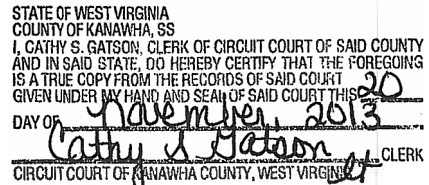 STATE OF WEST VIRGINIA
COUNTY OF KANAWHA, SS
I, CATHY S. GATSON, CLERK OF CIRCUIT COURT OF SAID COUNTY
AND IN SAID STATE, DO HEREBY CERTIFY THAT THE FOREGOING
IS A TRUE COPY FROM THE RECORDS OF SAID COURT
GIVEN UNDER MY HAND AND SEAL OF SAID COURT THIS 20
DAY OF November, 2013
Cathy S Gatson CLERK
CIRCUIT COURT OF KANAWHA COUNTY, WEST VIRGINIA